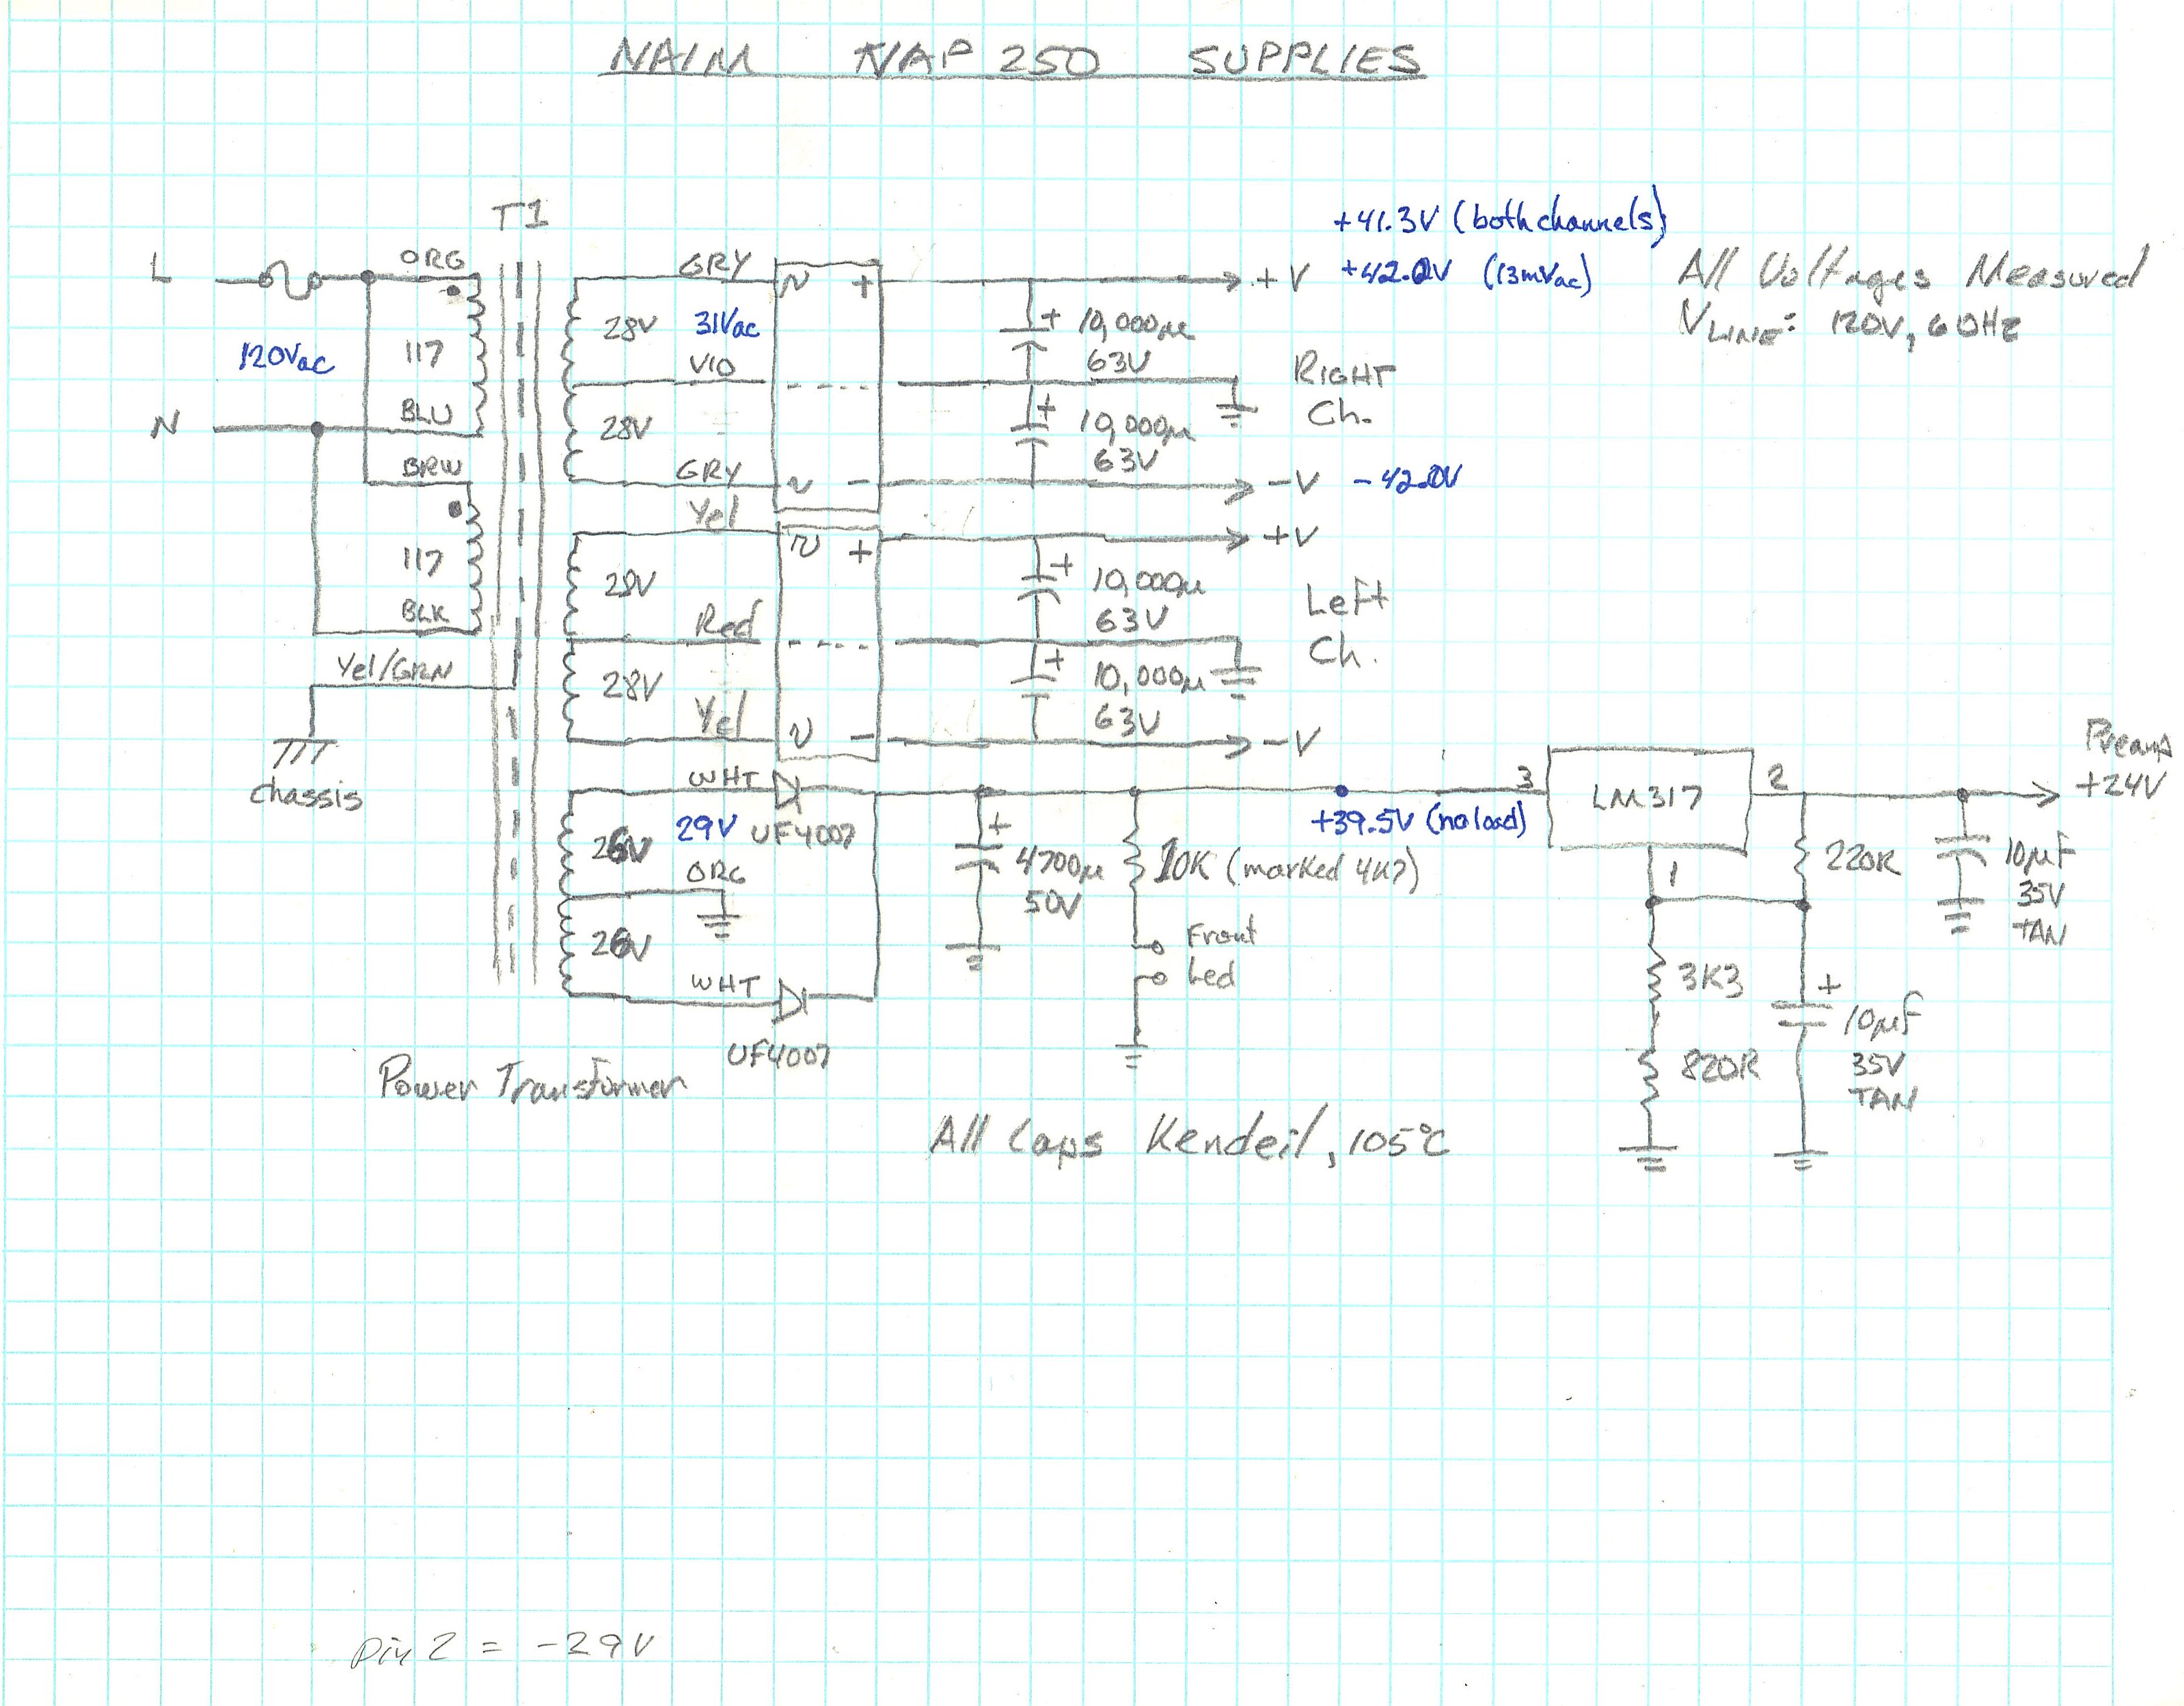 NAIM NAP 250 SUPPLIES
T1
+41.3V (both channels)
+42.0V (13mVac)
All Voltages Measured
VLINE: 120V, 60Hz
L
ORG
117
BLU
120Vac
N
BRW
117
BLK
Yel/GRN
chassis
GRY
28V
31Vac
VIO
28V
GRY
~ +
~ −
+V
+
10,000µ
63V
Right
Ch.
+
10,000µ
63V
−V
-42.0V
Yel
28V
Red
28V
Yel
~ +
~ −
+V
+
10,000µ
63V
Left
Ch.
+
10,000µ
63V
−V
WHT
UF4007
26V
29V
ORG
26V
WHT
UF4007
+
4700µ
50V
10K (marked 4K7)
Front
Led
+39.5V (no load)
3
LM317
2
1
Preamp
+24V
220R
10µF
35V
TAN
3K3
820R
+
10µF
35V
TAN
Power Transformer
All Caps Kendeil, 105°C
pin 2 = -29V